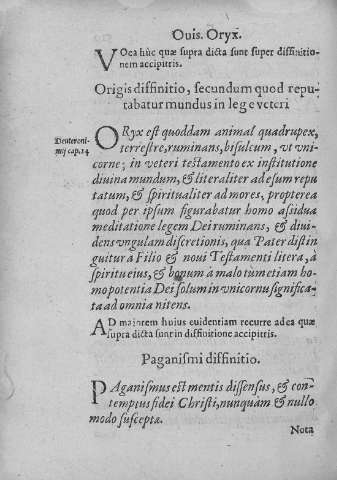 Ouis. Oryx.
VOca hùc quæ supra dicta sunt super diffinitio-
nem accipitris.
Origis diffinitio, secundum quod repu
tabatur mundus in lege veteri
Deuteroni-
mij cap. 14
ORyx est quoddam animal quadrupex,
terrestre, ruminans, bisulcum, vt vni
corne; in veteri testamento ex institutione
diuina mundum, & literaliter ad esum repu
tatum, & spiritualiter ad mores, propterea
quod per ipsum figurabatur homo assidua
meditatione legem Dei ruminans, & diui-
dens vngulam discretionis, qua Pater distin
guitur à Filio & noui Testamenti litera, à
spiritu eius, & bonum à malo tum etiam ho-
mo potentia Dei solum in vnicornu significa-
ta ad omnia nitens.
AD maiorem huius euidentiam recurre ad ea quæ
supra dicta sunt in diffinitione accipitris.
Paganismi diffinitio.
PAganismus est mentis dissensus, & con-
temptus fidei Christi, nunquam & nullo
modo susceptæ.
Nota